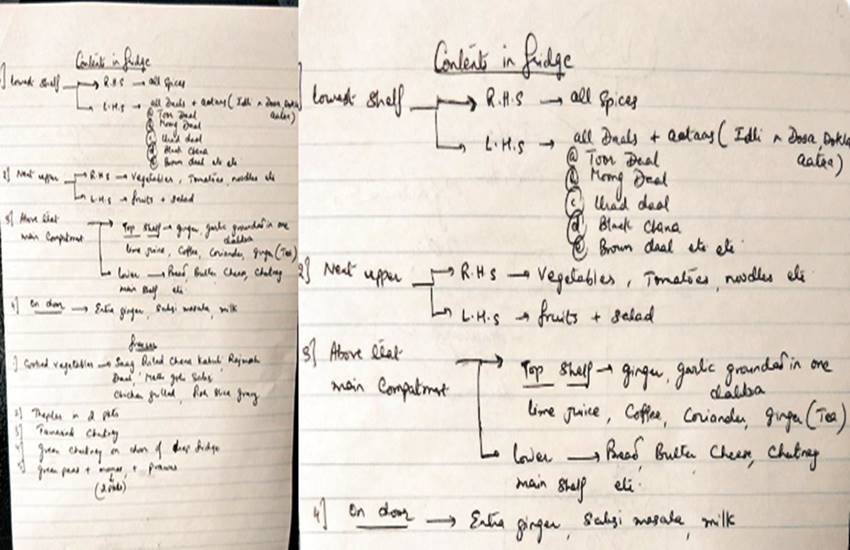 Contents in fridge
1] Lowest Shelf → R.H.S → all Spices
L.H.S → all Daals + aataas (Idli n Dosa, Dokla aataa)
(a) Toor Daal
(b) Mong Daal
(c) Urad daal
(d) Black Chana
(e) Brown daal etc etc
2] Next upper → R.H.S → Vegetables, Tomatoes, noodles etc
L.H.S → fruits + salad
3] Above that main Compartment → Top Shelf → ginger, garlic grounded in one dabba
lime juice, Coffee, Coriander, ginger (Tea)
Lower main shelf → Bread, Butter Cheese, Chutney etc.
4] On door → Extra ginger, Sabzi masala, milk
freezer
1] Cooked vegetables → Saag Chana Kabuli Rajmah
Daal
Chicken grilled
2] Theplas in 2 pkts
3] Tamarind Chutney
4] green chutney on door of deep fridge
5] green peas + momos + prawns
(2 pkts)
Contents in fridge
Lowest Shelf → R.H.S → all Spices
L.H.S → all Daals + aataas (Idli n Dosa, Dokla
aataa)
(a) Toor Daal
(b) Mong Daal
(c) Urad daal
(d) Black Chana
(e) Brown daal etc etc
2] Next upper → R.H.S → Vegetables, Tomatoes, noodles etc
L.H.S → fruits + salad
3] Above that → Top Shelf → ginger, garlic grounded in one
main Compartment dabba
lime juice, Coffee, Coriander, ginger (Tea)
Lower → Bread, Butter Cheese, Chutney
main shelf etc.
4] On door → Extra ginger, Sabzi masala, milk